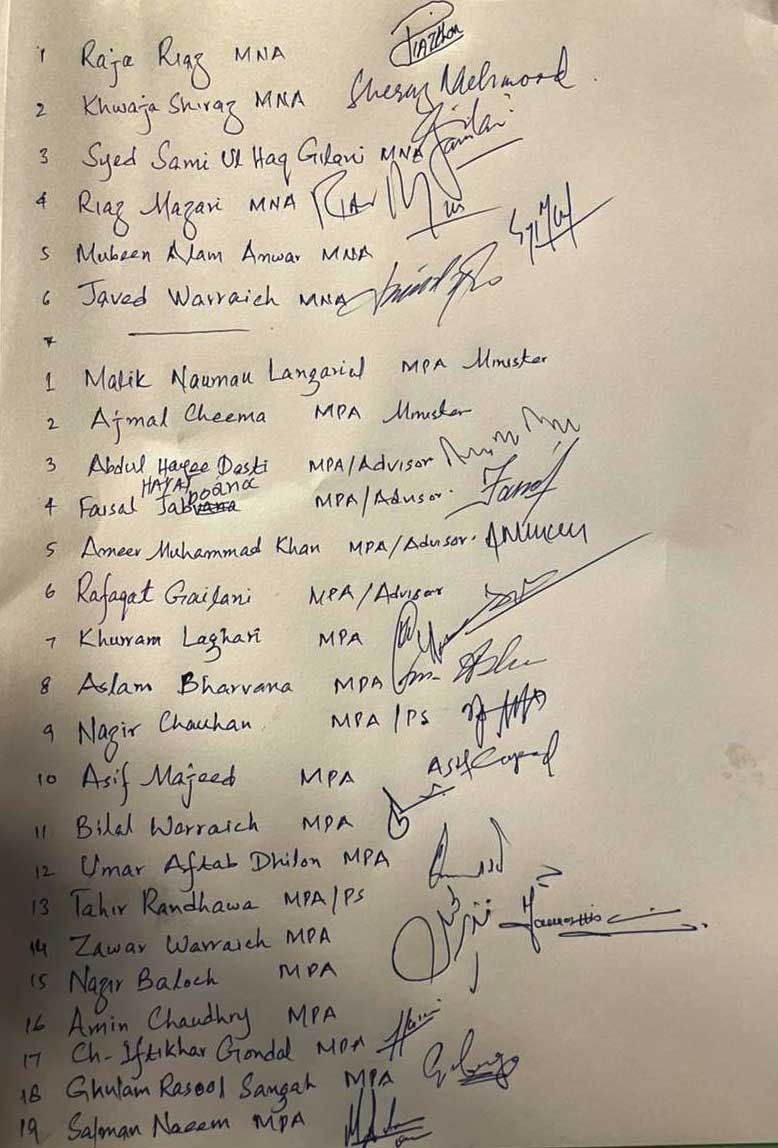 1 Raja Riaz MNA
2 Khwaja Shiraz MNA Sheraz Mehmood
3 Syed Sami Ul Haq Gilani MNA
4 Riaz Mazari MNA
5 Mubeen Alam Anwar MNA
6 Javed Warraich MNA
7
1 Malik Nauman Langarial MPA Minister
2 Ajmal Cheema MPA Minister
3 Abdul Hayee Dasti MPA/Advisor
HAYAT
4 Faisal Jabboana MPA/Advisor.
5 Ameer Muhammad Khan MPA/Advisor.
6 Rafaqat Gailani MPA/Advisor
7 Khurram Laghari MPA
8 Aslam Bharvana MPA
9 Nazir Chauhan MPA/PS
10 Asif Majeed MPA
11 Bilal Warraich MPA
12 Umar Aftab Dhilon MPA
13 Tahir Randhawa MPA/PS
14 Zawar Warraich MPA
15 Nazir Baloch MPA
16 Amin Chaudhry MPA
17 Ch- Iftikhar Gondal MPA
18 Ghulam Rasool Sangah MPA
19 Salman Naeem MPA